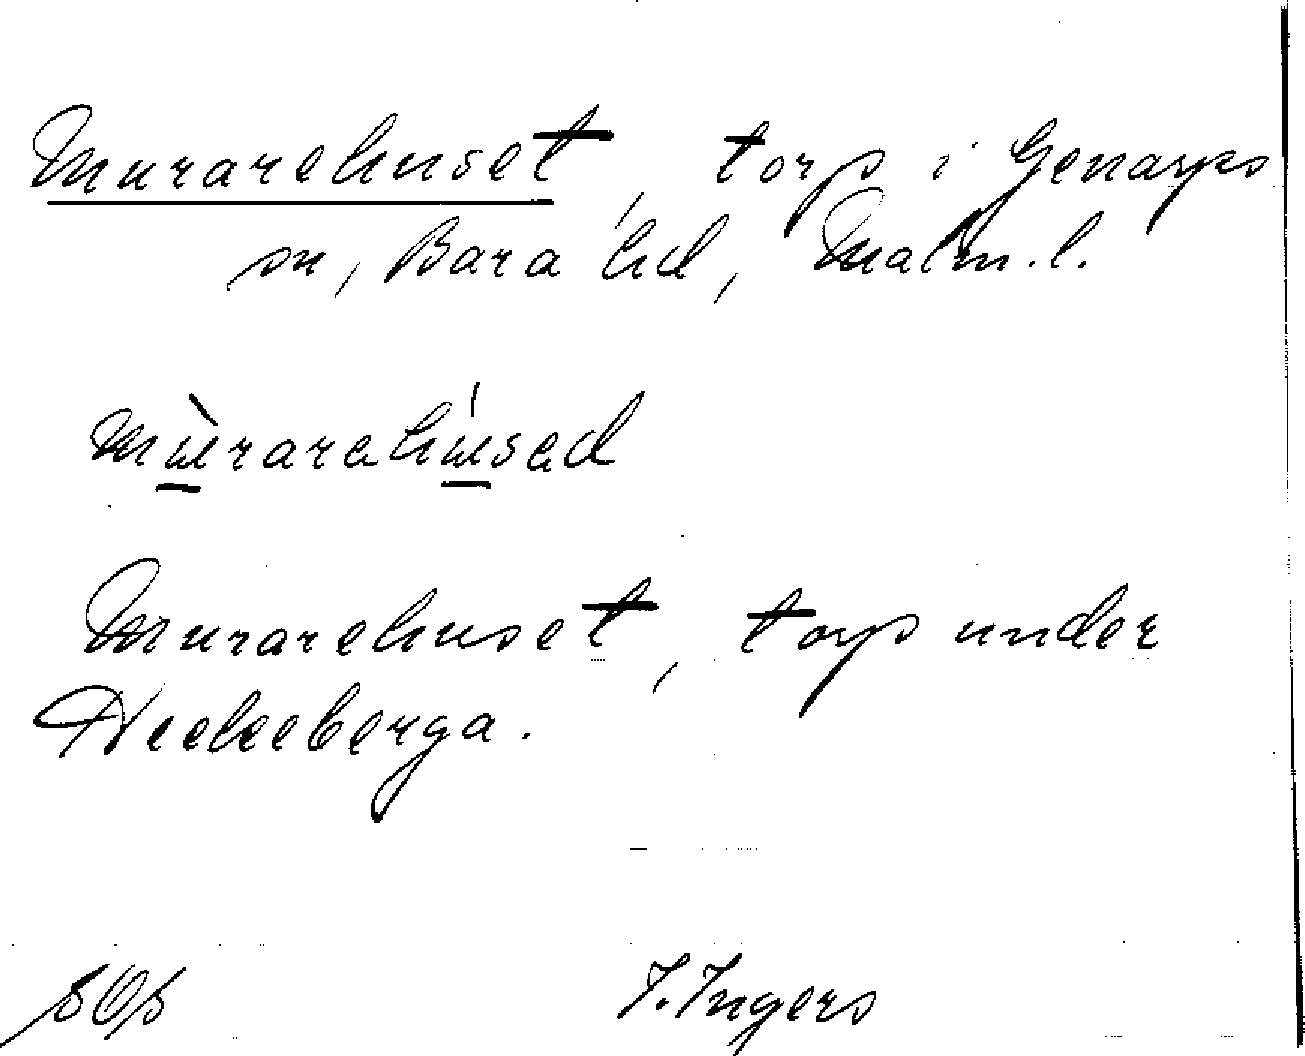 Murarehuset, torp i Genarps
sn, Bara hd, Malm. l.
mùrarahúsad
Murarehuset, torp under
Häckeberga.
I. Ingers